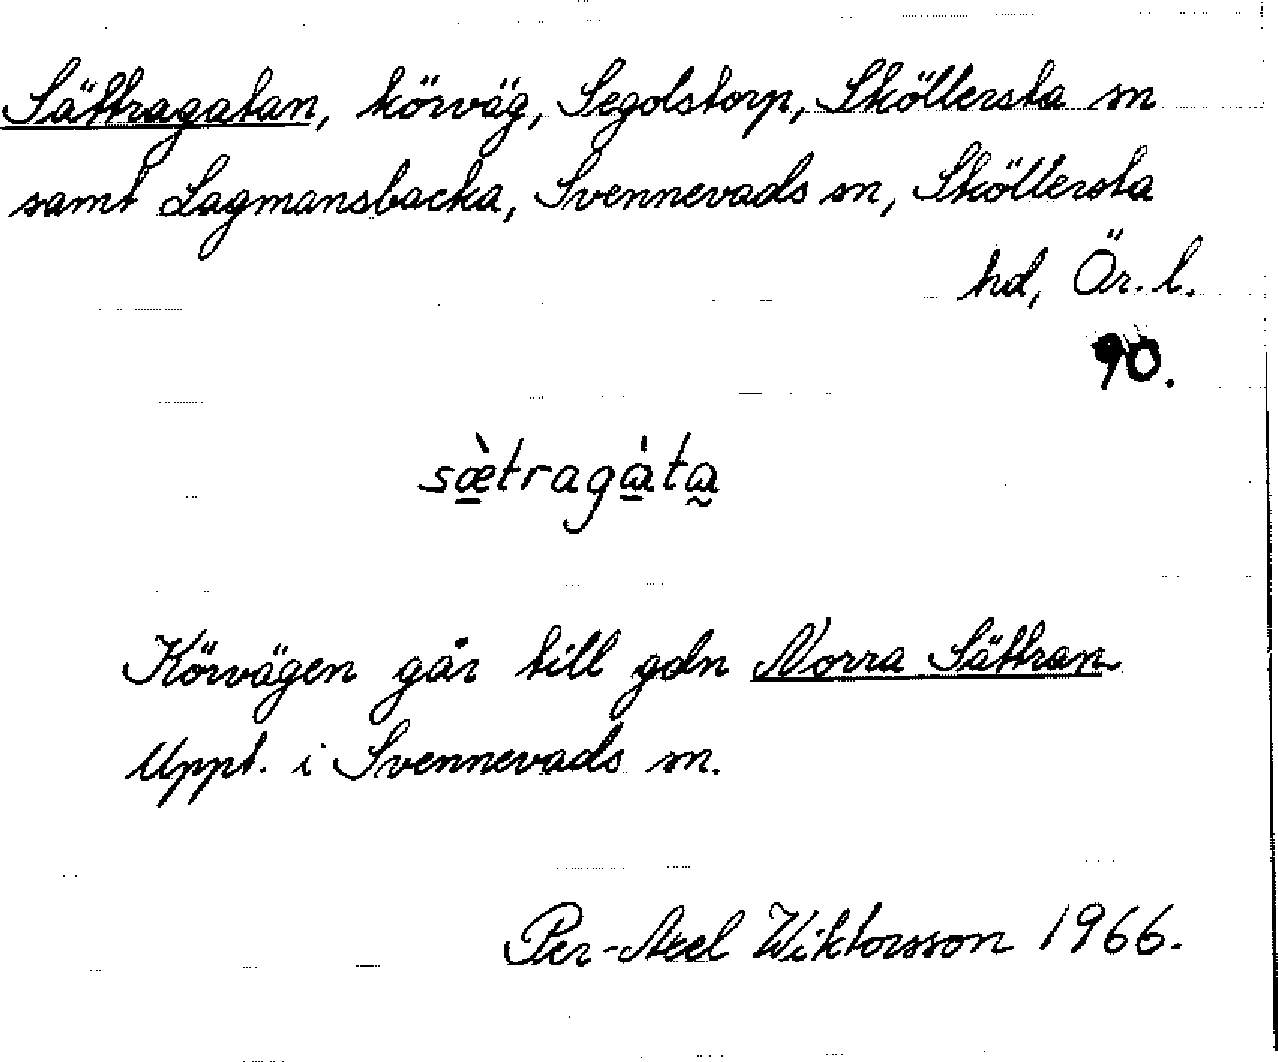 Sättragatan, körväg, Segolstorp, Sköllersta sn
samt Lagmansbacka, Svennevads sn, Sköllersta
hd, Ör. l.
90.
sæ̀tragàta
Körvägen går till gdn Norra Sättran
Uppt. i Svennevads sn.
Per-Axel Wiktorsson 1966.